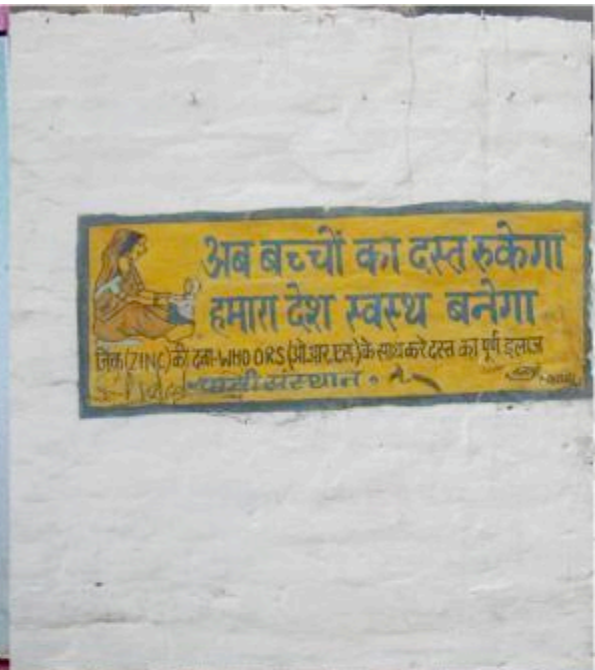 अब बच्चों का दस्त रुकेगा
हमारा देश स्वस्थ बनेगा
जिंक (ZINC) की दवा-WHO ORS (ओ.आर.एस.) के साथ करे दस्त का पूर्ण इलाज
संस्थान